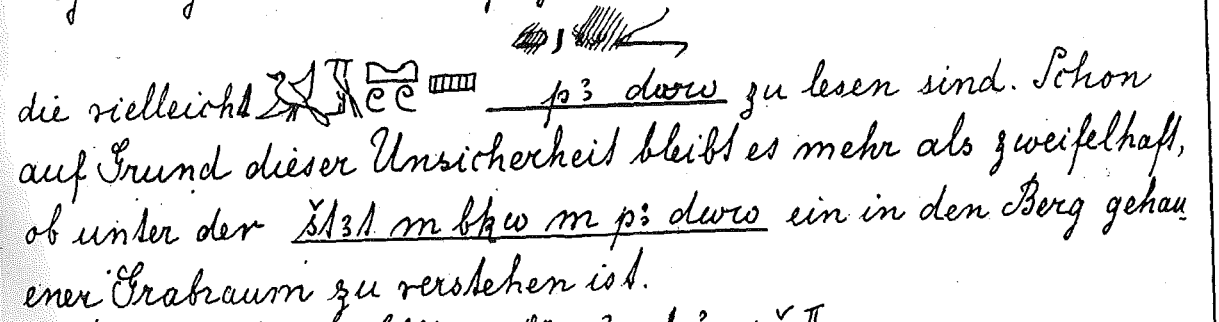 die vielleicht p3 dww zu lesen sind. Schon
auf Grund dieser Unsicherheit bleibt es mehr als zweifelhaft,
ob unter der št3t m bkw m p3 dww ein in den Berg gehau
ener Grabraum zu verstehen ist.